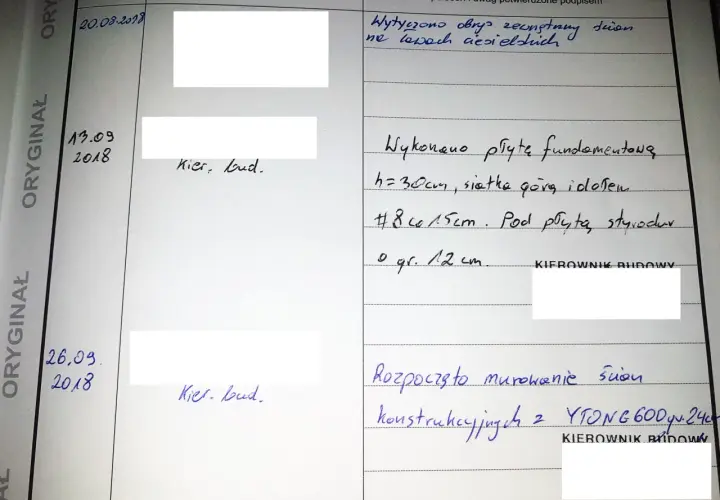 potwierdzone podpisem
20.08.2018
Wytyczono obrys zewnętrzny ścian
na ławach ciesielskich
13.09
2018
Kier. bud.
Wykonano płytę fundamentową
h=30cm, siatka górą i dołem
#8 co 15cm. Pod płytą styrodur
o gr. 12 cm.
KIEROWNIK BUDOWY
26.09.
2018
Kier. bud.
Rozpoczęto murowanie ścian
konstrukcyjnych z YTONG 600 gr. 24cm
KIEROWNIK BUDOWY
ORYGINAŁ
ORYGINAŁ